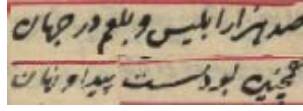 صد هزار ابلیس و بلعم در جهان
همچنین بودست پیدا و نهان